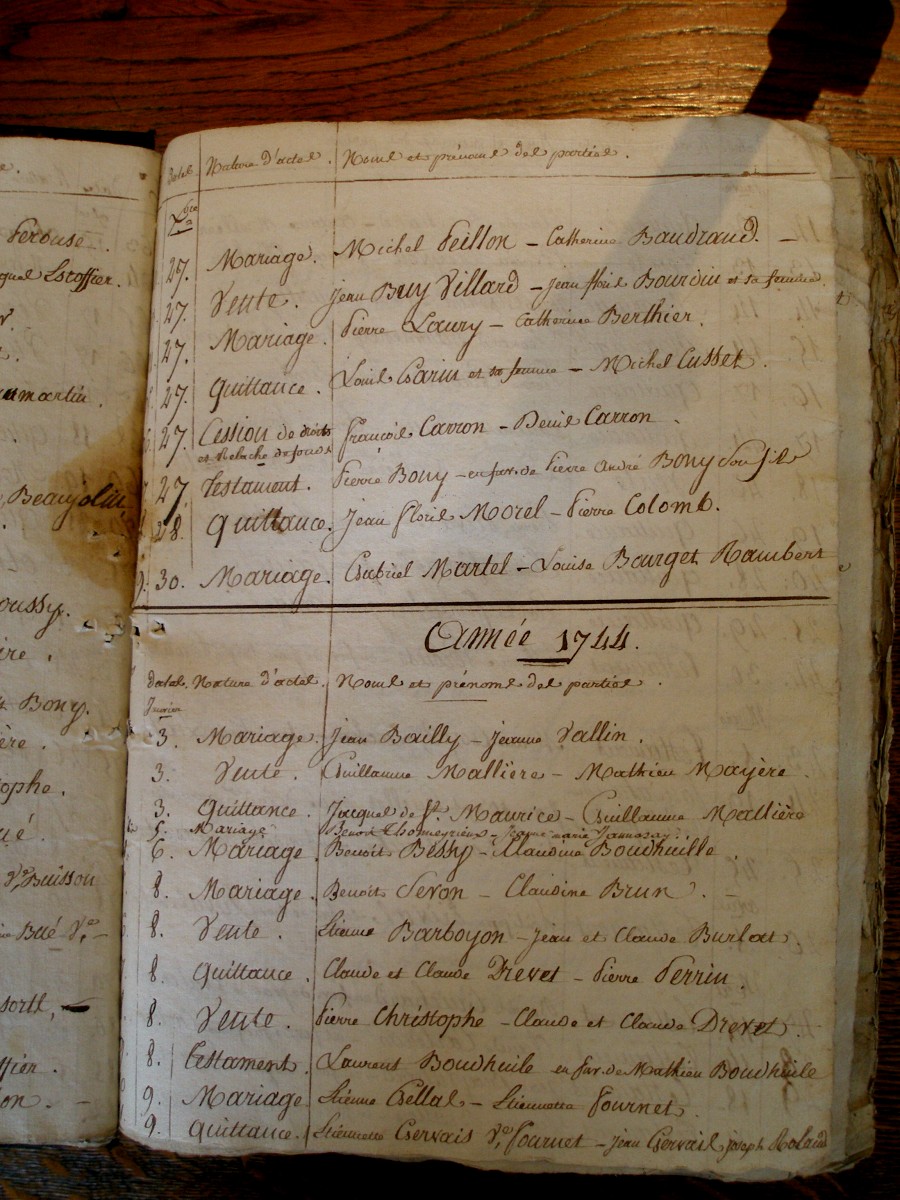 Dates Nature d'actes. Noms et prénoms des parties.
27. Mariage. Michel Peillon - Catherine Baudrand. -
27. Vente. Jean Buy Villard - Jean fleuri Bourdin et sa femme
27. Mariage. Pierre Laury - Catherine Berthier.
27. Quittance. Louis Garin et sa femme - Michel Cusset
27. Cession de droits
et Relache de fonds François Carron - Denis Carron
27. Testament. Pierre Bony - en fav. de Pierre André Bony son fils
28. Quittance. Jean Floris Morel - Pierre Colomb.
30. Mariage. Gabriel Martel - Louise Bourget Rambert
Année 1744.
Dates. Nature d'actes. Noms et prénoms des parties.
Janvier
3. Mariage. Jean Bailly - Jeanne Vallin.
3. Vente. Guillaume Mallière - Mathieu Mayère.
3. Quittance. Jacques de St. Maurice - Guillaume Mallière
5. Mariage Benoit Thomeyrieux - Jeanne marie
6. Mariage Benoit Bessy - Claudine Boudheuille.
8. Mariage. Benoit Sevon - Claudine Brun. -
8. Vente. Etienne Barboyon - Jean et Claude Burlat
8. Quittance. Claude et Claude Drevet - Pierre Perrin.
8. Vente. Pierre Christophe - Claude et Claude Drevet.
8. Testament. Laurent Boudheuile en fav. de Mathieu Boudheuile
9. Mariage Etienne Gellas - Etiennette Fournet.
9. Quittance. Etiennette Gervais Ve. Fournet - Jean Gervais Joseph Roland
Perouse.
Estoffier.
martin.
Beaujolin
oussy.
Bony.
ophe.
Ve. Buisson
Bué Ve. -